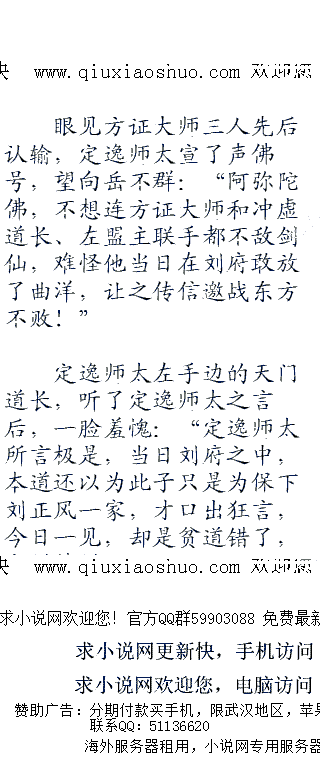 快 www.qiuxiaoshuo.com 欢迎您
眼见方证大师三人先后
认输，定逸师太宣了声佛
号，望向岳不群：“阿弥陀
佛，不想连方证大师和冲虚
道长、左盟主联手都不敌剑
仙，难怪他当日在刘府敢放
了曲洋，让之传信邀战东方
不败！”
定逸师太左手边的天门
道长，听了定逸师太之言
后，一脸羞愧：“定逸师太
所言极是，当日刘府之中，
本道还以为此子只是为保下
刘正风一家，才口出狂言，
今日一见，却是贫道错了，
快 www.qiuxiaoshuo.com 欢迎您
求小说网欢迎您！官方QQ群59903088 免费最新
求小说网更新快，手机访问
求小说网欢迎您，电脑访问
赞助广告：分期付款买手机，限武汉地区，苹果
联系QQ：51136620
海外服务器租用，小说网专用服务器